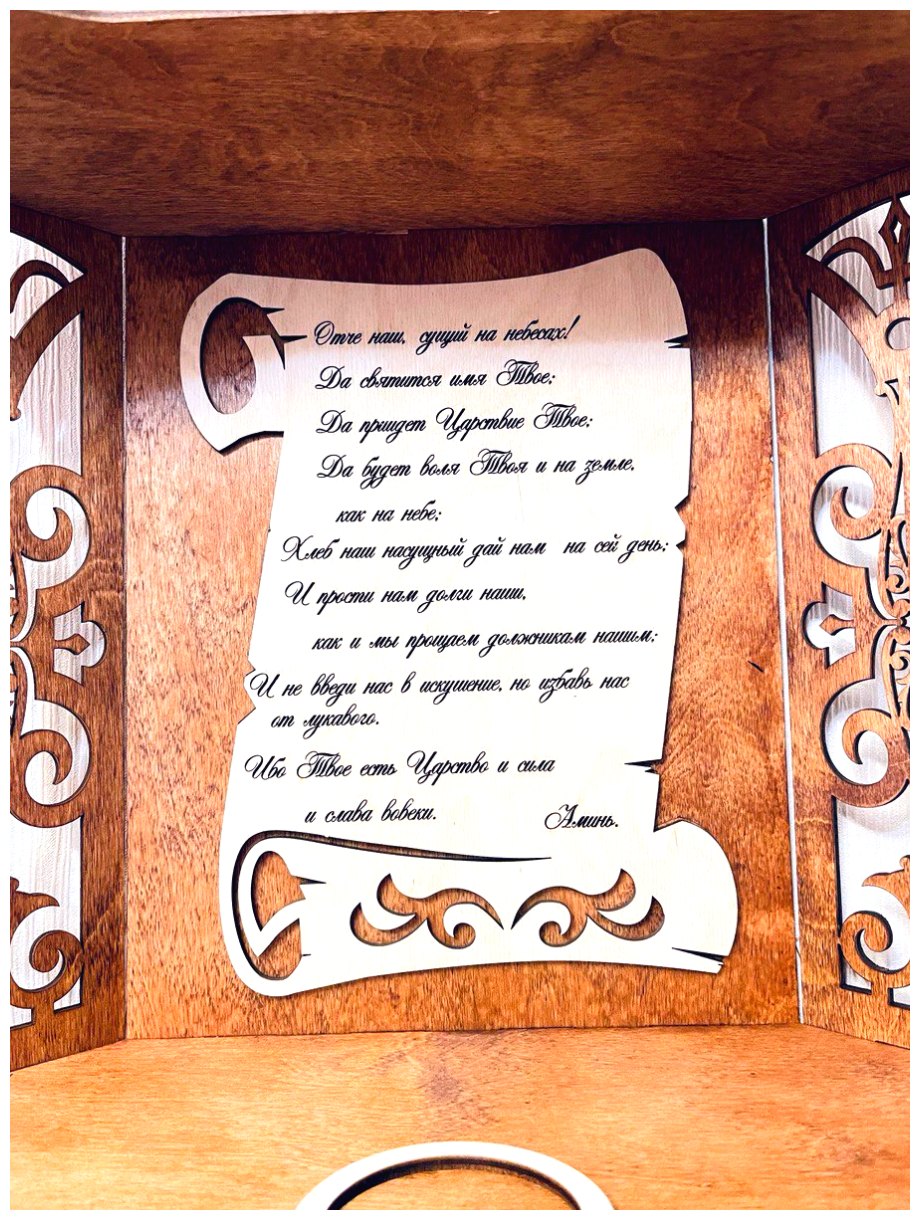 Отче наш, сущий на небесах!
Да святится имя Твое;
Да приидет Царствие Твое;
Да будет воля Твоя и на земле,
как на небе;
Хлеб наш насущный дай нам на сей день;
И прости нам долги наши,
как и мы прощаем должникам нашим;
И не введи нас в искушение, но избавь нас
от лукавого.
Ибо Твое есть Царство и сила
и слава вовеки. Аминь.